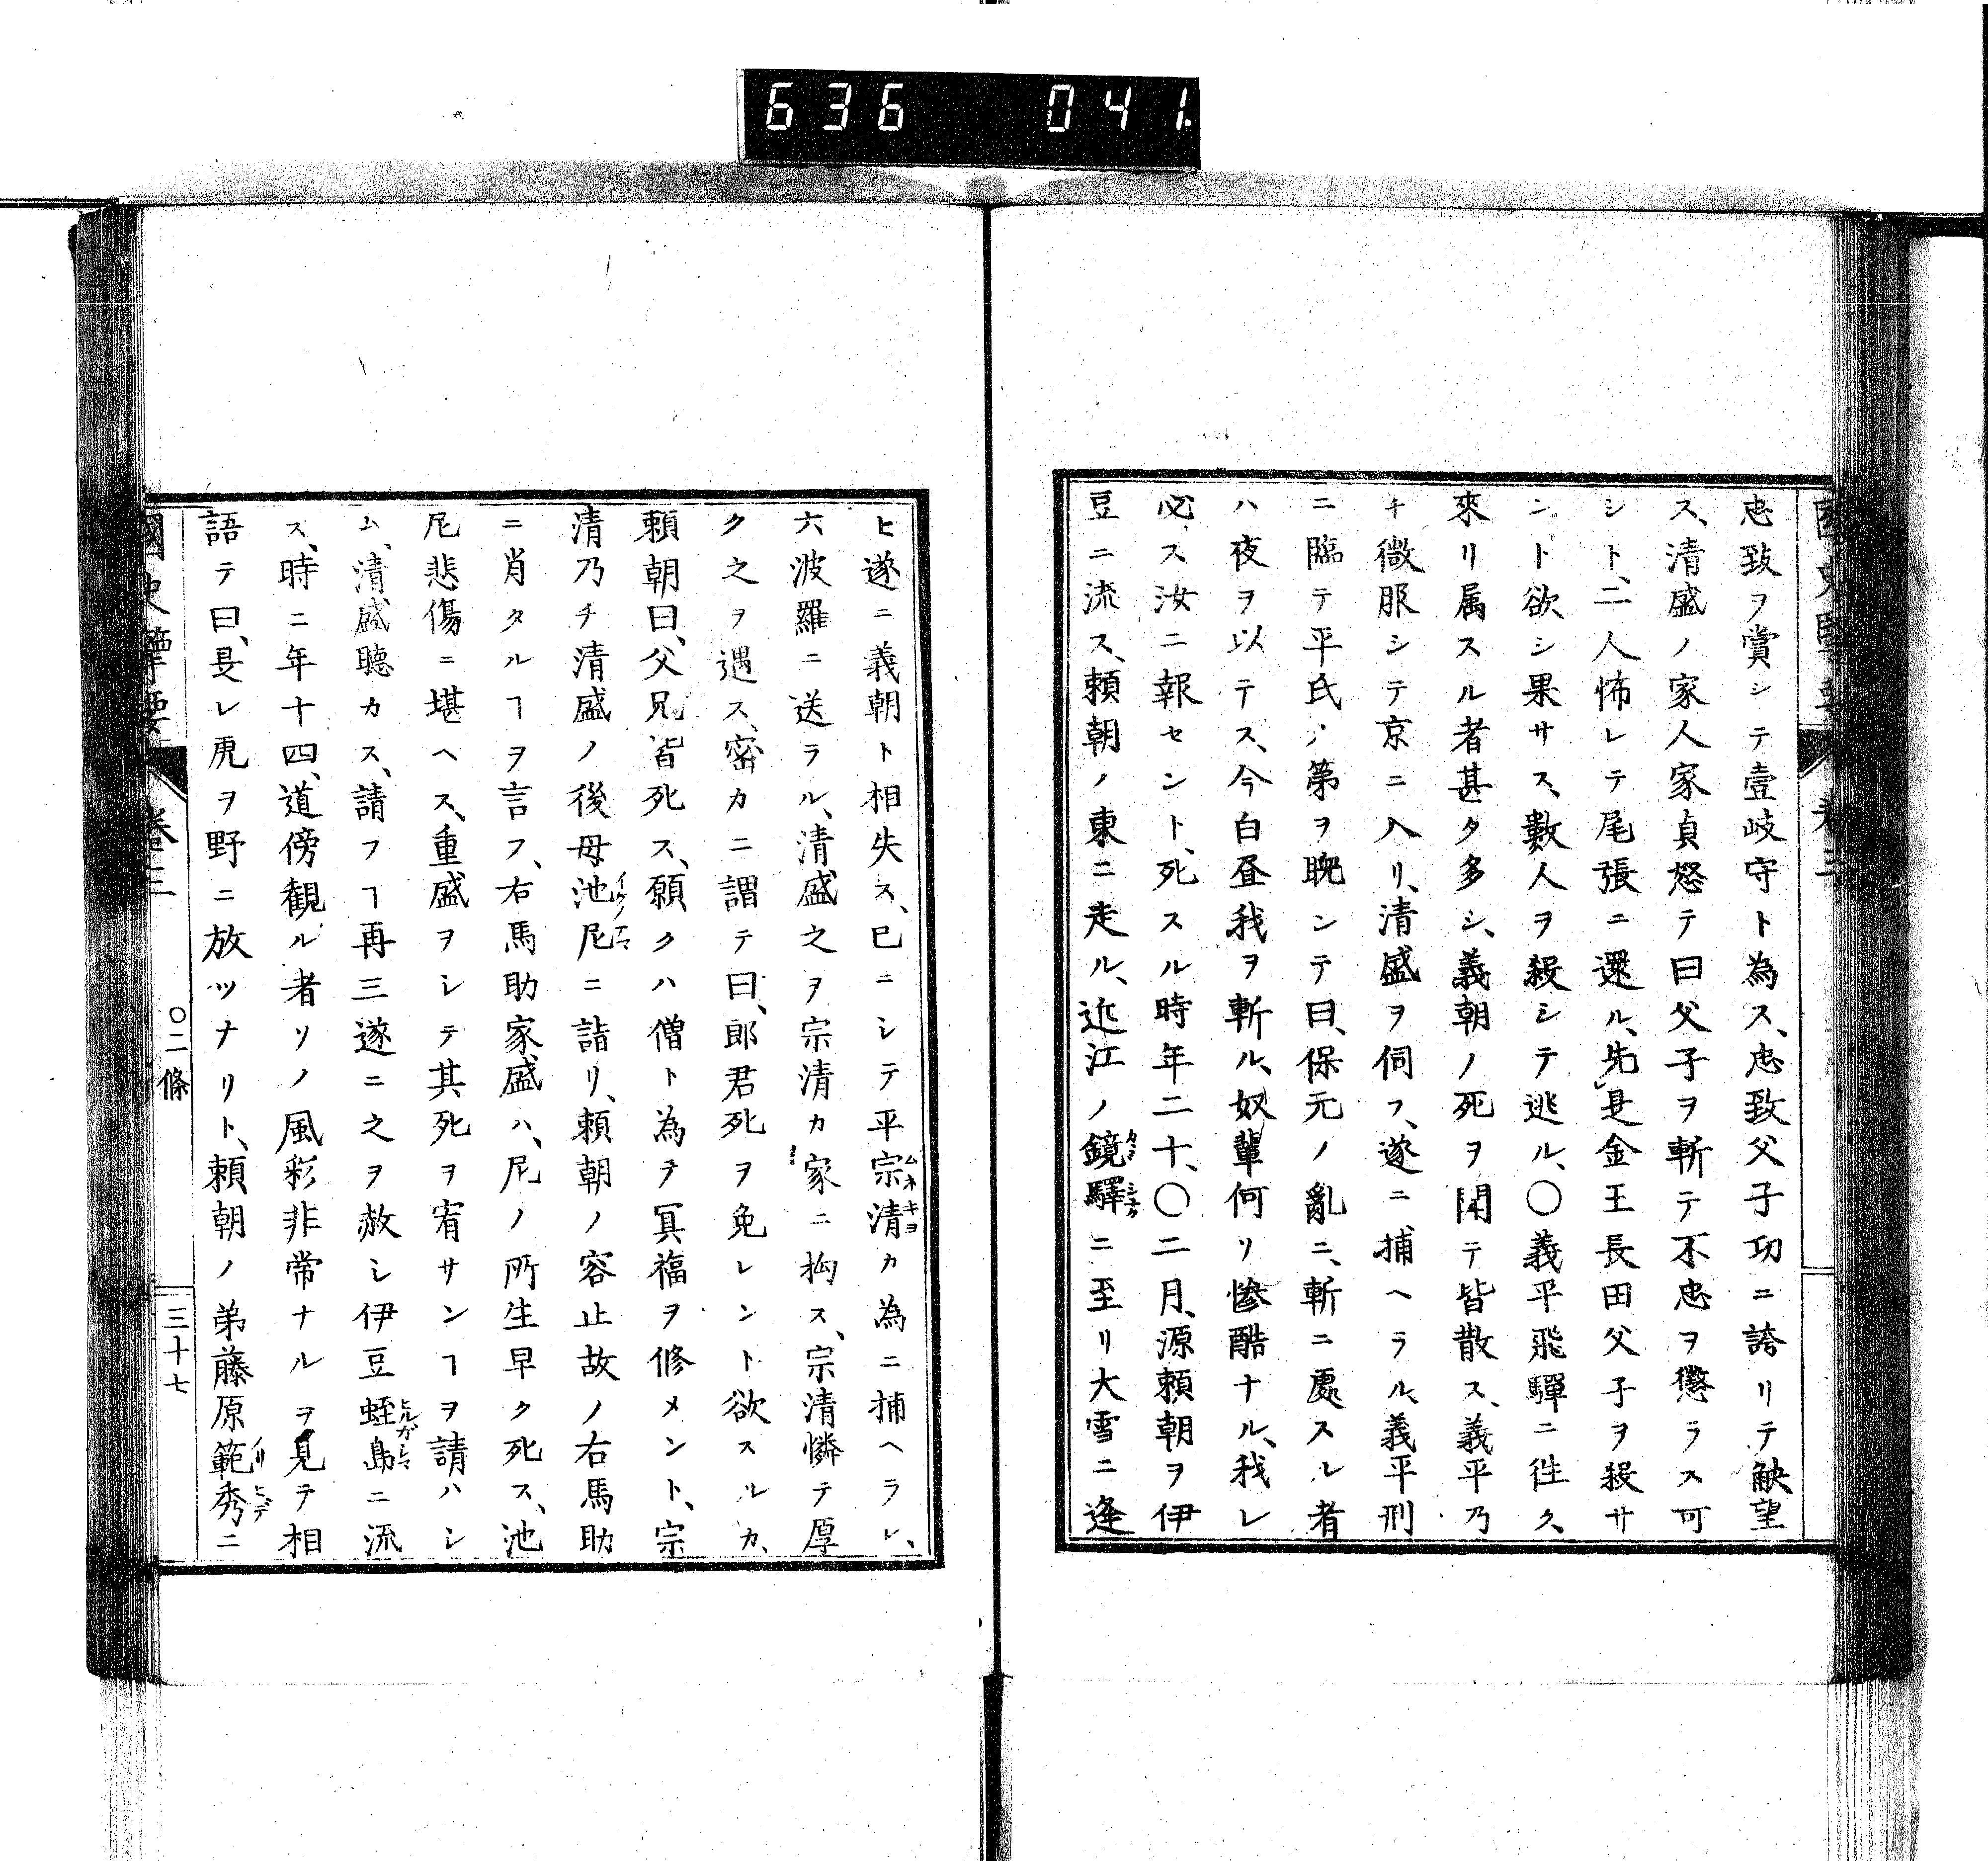 636 041
忠致ヲ賞シテ壹岐守ト為ス、忠致父子功ニ誇リテ觖望
ス、清盛ノ家人家貞怒テ曰父子ヲ斬テ不忠ヲ懲ラス可
シト、二人怖レテ尾張ニ還ル、先是金王長田父子ヲ殺サ
ント欲シ果サス、數人ヲ殺シテ逃ル、〇義平飛驒ニ徃ク、
來リ属スル者甚タ多シ、義朝ノ死ヲ聞テ皆散ス、義平乃
チ微服シテ京ニ入リ、清盛ヲ伺フ、遂ニ捕ヘラル、義平刑
ニ臨テ平氏ノ第ヲ睨ンテ曰、保元ノ亂ニ、斬ニ處スル者
ハ夜ヲ以テス、今白昼我ヲ斬ル、奴輩何ソ惨酷ナル、我レ
必ス汝ニ報セント、死スル時年二十、〇二月、源頼朝ヲ伊
豆ニ流ス、頼朝ノ東ニ走ル、近江ノ鏡驛ニ至リ大雪ニ逢
ヒ遂ニ義朝ト相失ス、已ニシテ平宗清カ為ニ捕ヘラレ、
ムネキヨ
六波羅ニ送ラル、清盛之ヲ宗清カ家ニ拘ス、宗清憐テ厚
ク之ヲ遇ス、密カニ謂テ曰、郎君死ヲ免レント欲スルカ、
頼朝曰、父兄皆死ス、願クハ僧ト為テ冥福ヲ修メント、宗
清乃チ清盛ノ後母池尼ニ詣リ、頼朝ノ容止故ノ右馬助
イケノアマ
ニ肖タルヿヲ言フ、右馬助家盛ハ、尼ノ所生早ク死ス、池
尼悲傷ニ堪ヘス、重盛ヲシテ其死ヲ宥サンヿヲ請ハシ
ム、清盛聽カス、請フヿ再三遂ニ之ヲ赦シ伊豆蛭島ニ流
ヒルガシマ
ス、時ニ年十四、道傍観ル者ソノ風彩非常ナルヲ見テ相
語テ曰、是レ虎ヲ野ニ放ツナリト、頼朝ノ弟藤原範秀ニ
ノリヒデ
國史擥要 卷三 〇二條 三十七